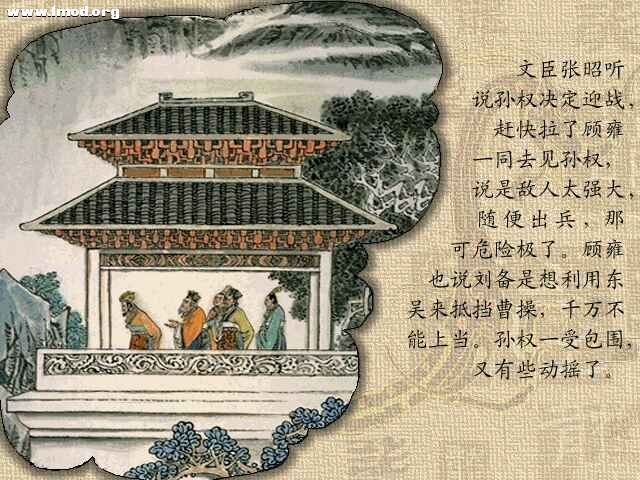 www.lmod.org
文臣张昭听
说孙权决定迎战，
赶快拉了顾雍
一同去见孙权，
说是敌人太强大，
随便出兵，那
可危险极了。顾雍
也说刘备是想利用东
吴来抵挡曹操，千万不
能上当。孙权一受包围，
又有些动摇了。